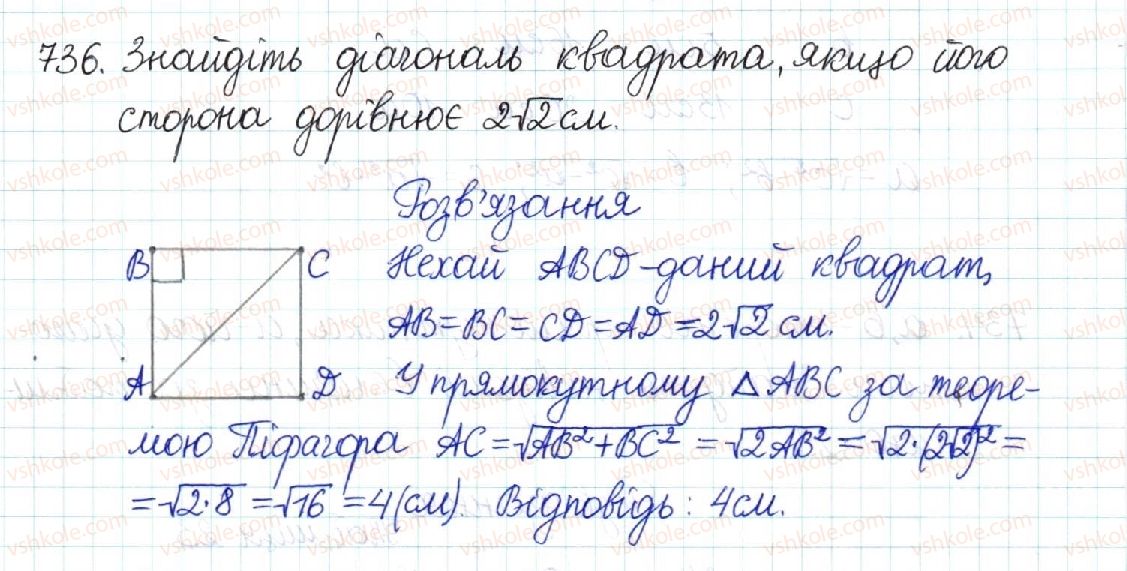 736. Знайдіть діагональ квадрата, якщо його
сторона дорівнює 2√2 см.
Розв'язання
B C Нехай ABCD - даний квадрат,
AB = BC = CD = AD = 2√2 см.
A D У прямокутному △ABC за теоре-
мою Піфагора AC = √AB²+BC² = √2AB² = √2·(2√2)² =
= √2·8 = √16 = 4 (см). Відповідь: 4 см.